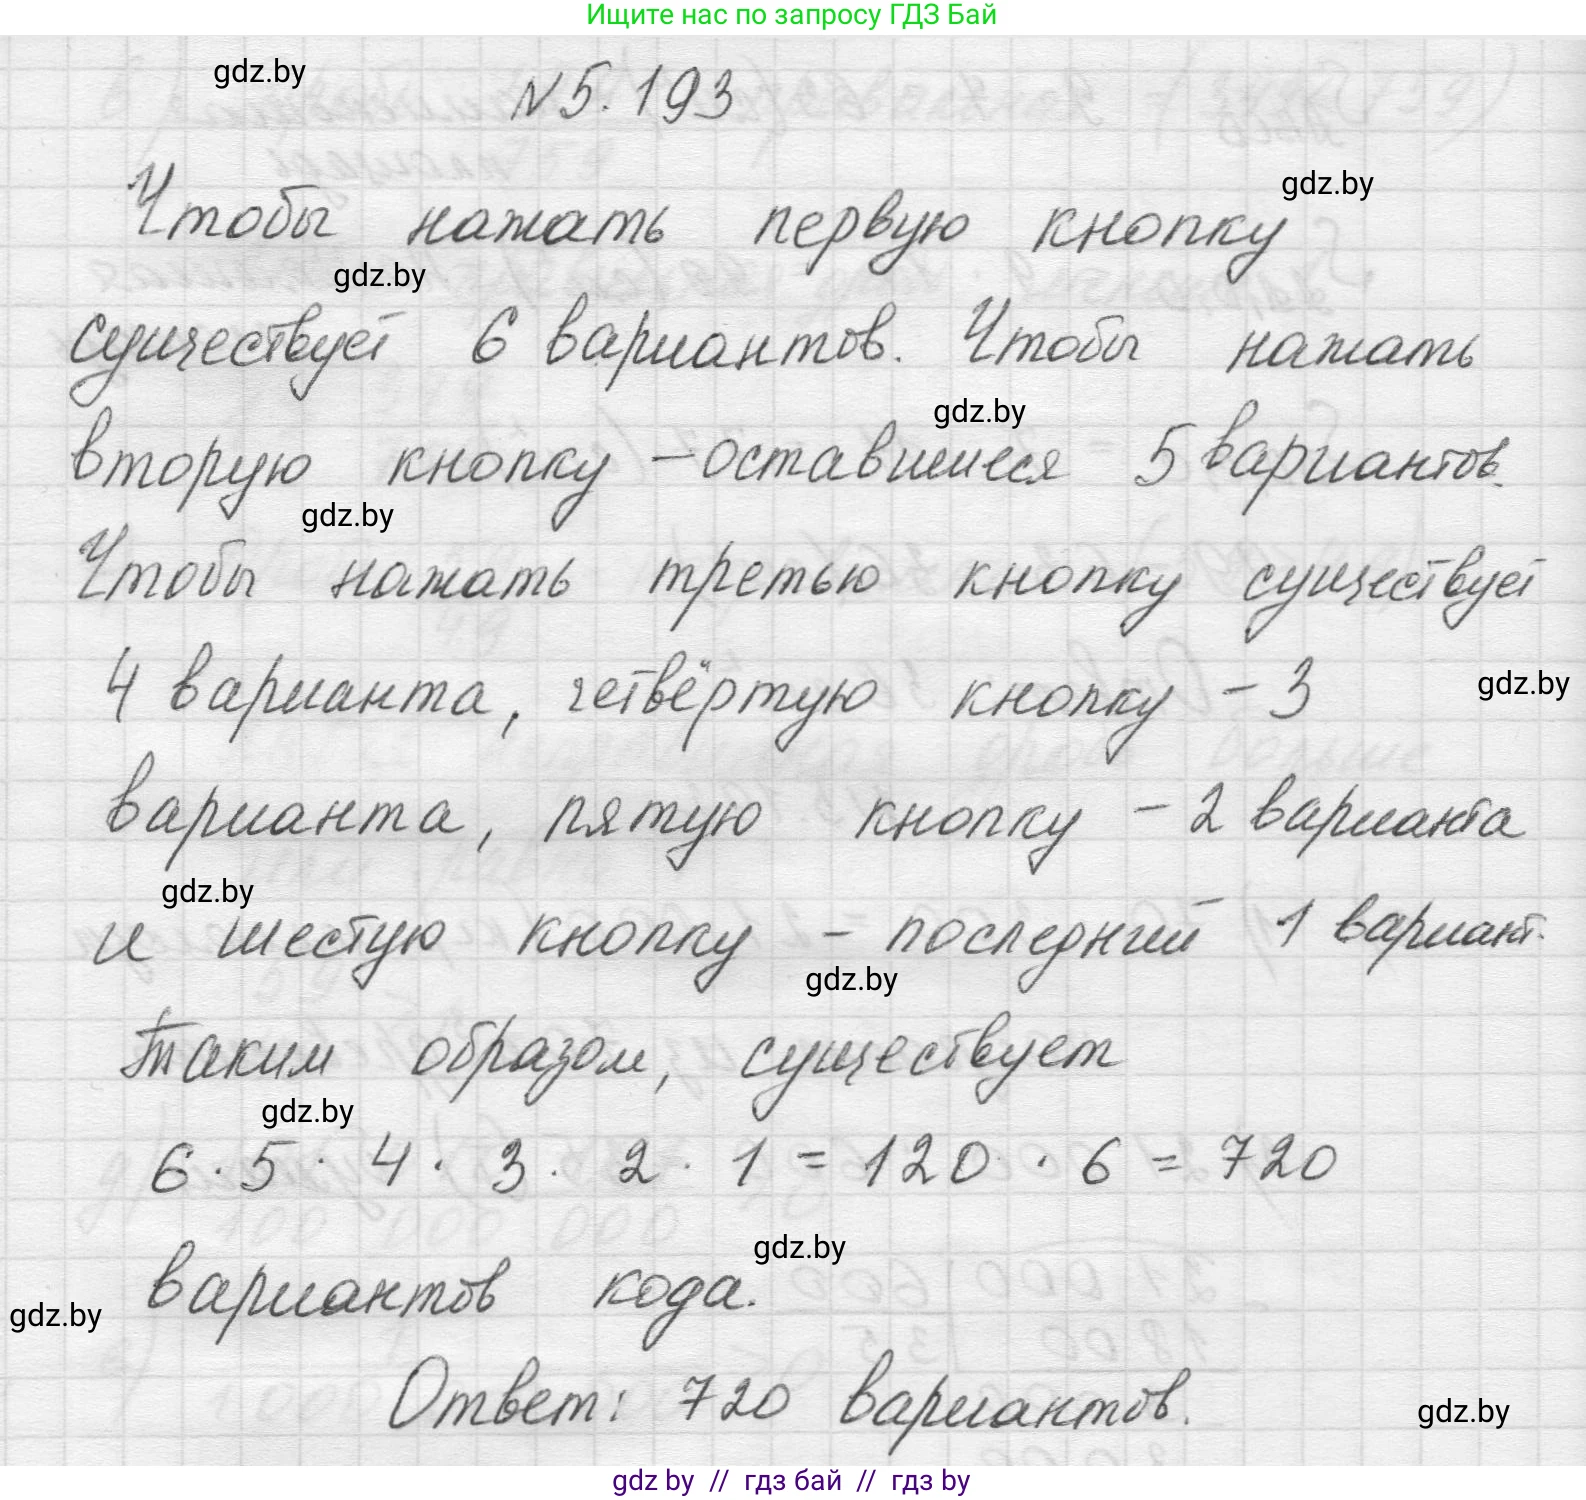 Ищите нас по запросу ГДЗ Бай
gdz.by
№5.193
gdz.by
Чтобы нажать первую кнопку
gdz.by
существует 6 вариантов. Чтобы нажать
gdz.by
вторую кнопку – оставшиеся 5 вариантов.
gdz.by
Чтобы нажать третью кнопку существует
4 варианта, четвёртую кнопку – 3
gdz.by
варианта, пятую кнопку – 2 варианта
gdz.by
и шестую кнопку – последний 1 вариант.
gdz.by
Таким образом, существует
gdz.by
6 · 5 · 4 · 3 · 2 · 1 = 120 · 6 = 720
gdz.by
вариантов кода.
gdz.by
Ответ: 720 вариантов.
gdz.by
gdz by // гдз бай // гдз by